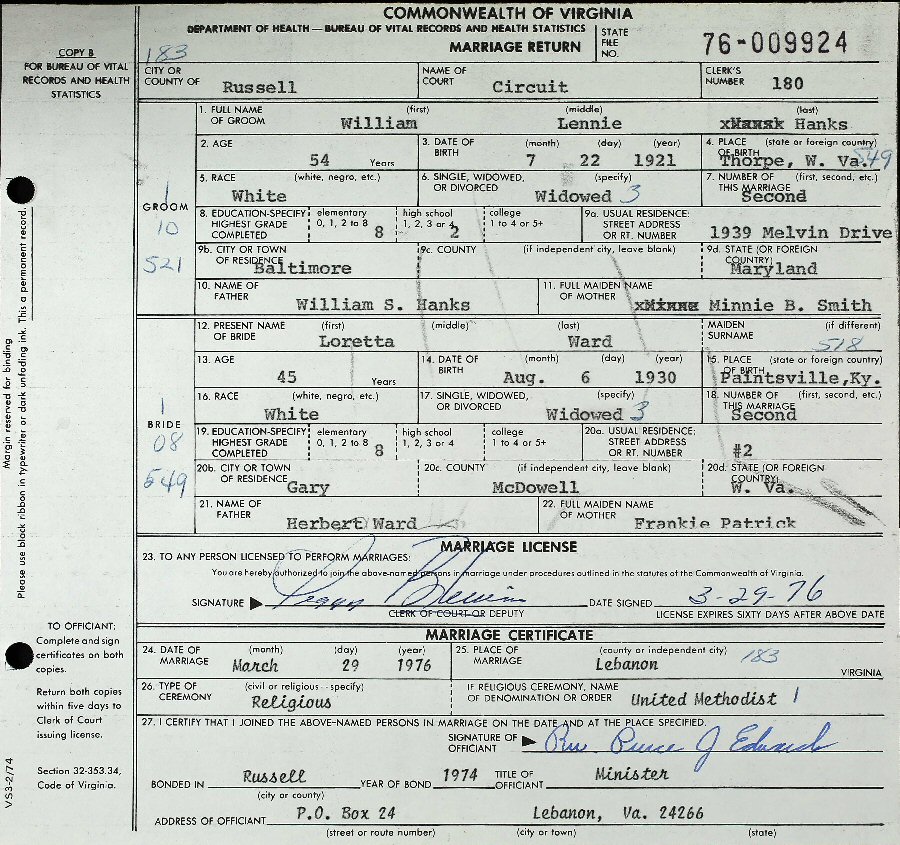 COMMONWEALTH OF VIRGINIA
DEPARTMENT OF HEALTH — BUREAU OF VITAL RECORDS AND HEALTH STATISTICS
MARRIAGE RETURN
STATE FILE NO. 76-009924
COPY B
FOR BUREAU OF VITAL RECORDS AND HEALTH STATISTICS
183
CITY OR COUNTY OF Russell
NAME OF COURT Circuit
CLERK'S NUMBER 180
GROOM
1
10
521
1. FULL NAME OF GROOM (first) William (middle) Lennie (last) Hanks
2. AGE 54 Years
3. DATE OF BIRTH (month) 7 (day) 22 (year) 1921
4. PLACE OF BIRTH (state or foreign country) Thorpe, W. Va. 549
5. RACE (white, negro, etc.) White
6. SINGLE, WIDOWED, OR DIVORCED (specify) Widowed 3
7. NUMBER OF THIS MARRIAGE (first, second, etc.) Second
8. EDUCATION-SPECIFY HIGHEST GRADE COMPLETED elementary 0, 1, 2 to 8 8 high school 1, 2, 3 or 4 2 college 1 to 4 or 5+
9a. USUAL RESIDENCE: STREET ADDRESS OR RT. NUMBER 1939 Melvin Drive
9b. CITY OR TOWN OF RESIDENCE Baltimore
9c. COUNTY (if independent city, leave blank)
9d. STATE (OR FOREIGN COUNTRY) Maryland
10. NAME OF FATHER William S. Hanks
11. FULL MAIDEN NAME OF MOTHER Minnie B. Smith
BRIDE
1
08
549
12. PRESENT NAME OF BRIDE (first) Loretta (middle) (last) Ward
MAIDEN SURNAME (if different) 518
13. AGE 45 Years
14. DATE OF BIRTH (month) Aug. (day) 6 (year) 1930
15. PLACE OF BIRTH (state or foreign country) Paintsville,Ky.
16. RACE (white, negro, etc.) White
17. SINGLE, WIDOWED, OR DIVORCED (specify) Widowed 3
18. NUMBER OF THIS MARRIAGE (first, second, etc.) Second
19. EDUCATION-SPECIFY HIGHEST GRADE COMPLETED elementary 0, 1, 2 to 8 8 high school 1, 2, 3 or 4 college 1 to 4 or 5+
20a. USUAL RESIDENCE: STREET ADDRESS OR RT. NUMBER #2
20b. CITY OR TOWN OF RESIDENCE Gary
20c. COUNTY (if independent city, leave blank) McDowell
20d. STATE (OR FOREIGN COUNTRY) W. Va.
21. NAME OF FATHER Herbert Ward
22. FULL MAIDEN NAME OF MOTHER Frankie Patrick
MARRIAGE LICENSE
23. TO ANY PERSON LICENSED TO PERFORM MARRIAGES:
You are hereby authorized to join the above-named persons in marriage under procedures outlined in the statutes of the Commonwealth of Virginia.
SIGNATURE Peggy DATE SIGNED 3-29-76
CLERK OF COURT OR DEPUTY
LICENSE EXPIRES SIXTY DAYS AFTER ABOVE DATE
MARRIAGE CERTIFICATE
24. DATE OF MARRIAGE (month) March (day) 29 (year) 1976
25. PLACE OF MARRIAGE (county or independent city) Lebanon 183 VIRGINIA
26. TYPE OF CEREMONY (civil or religious - specify) Religious
IF RELIGIOUS CEREMONY, NAME OF DENOMINATION OR ORDER United Methodist 1
27. I CERTIFY THAT I JOINED THE ABOVE-NAMED PERSONS IN MARRIAGE ON THE DATE AND AT THE PLACE SPECIFIED.
SIGNATURE OF OFFICIANT Rev J Edwards
BONDED IN Russell (city or county) YEAR OF BOND 1974 TITLE OF OFFICIANT Minister
ADDRESS OF OFFICIANT P.O. Box 24 Lebanon, Va. 24266
(street or route number) (city or town) (state)
Margin reserved for binding
Please use black ribbon in typewriter or dark unfading ink. This a permanent record.
TO OFFICIANT:
Complete and sign
certificates on both
copies.
Return both copies
within five days to
Clerk of Court
issuing license.
Section 32-353.34,
Code of Virginia.
VS3-2/74